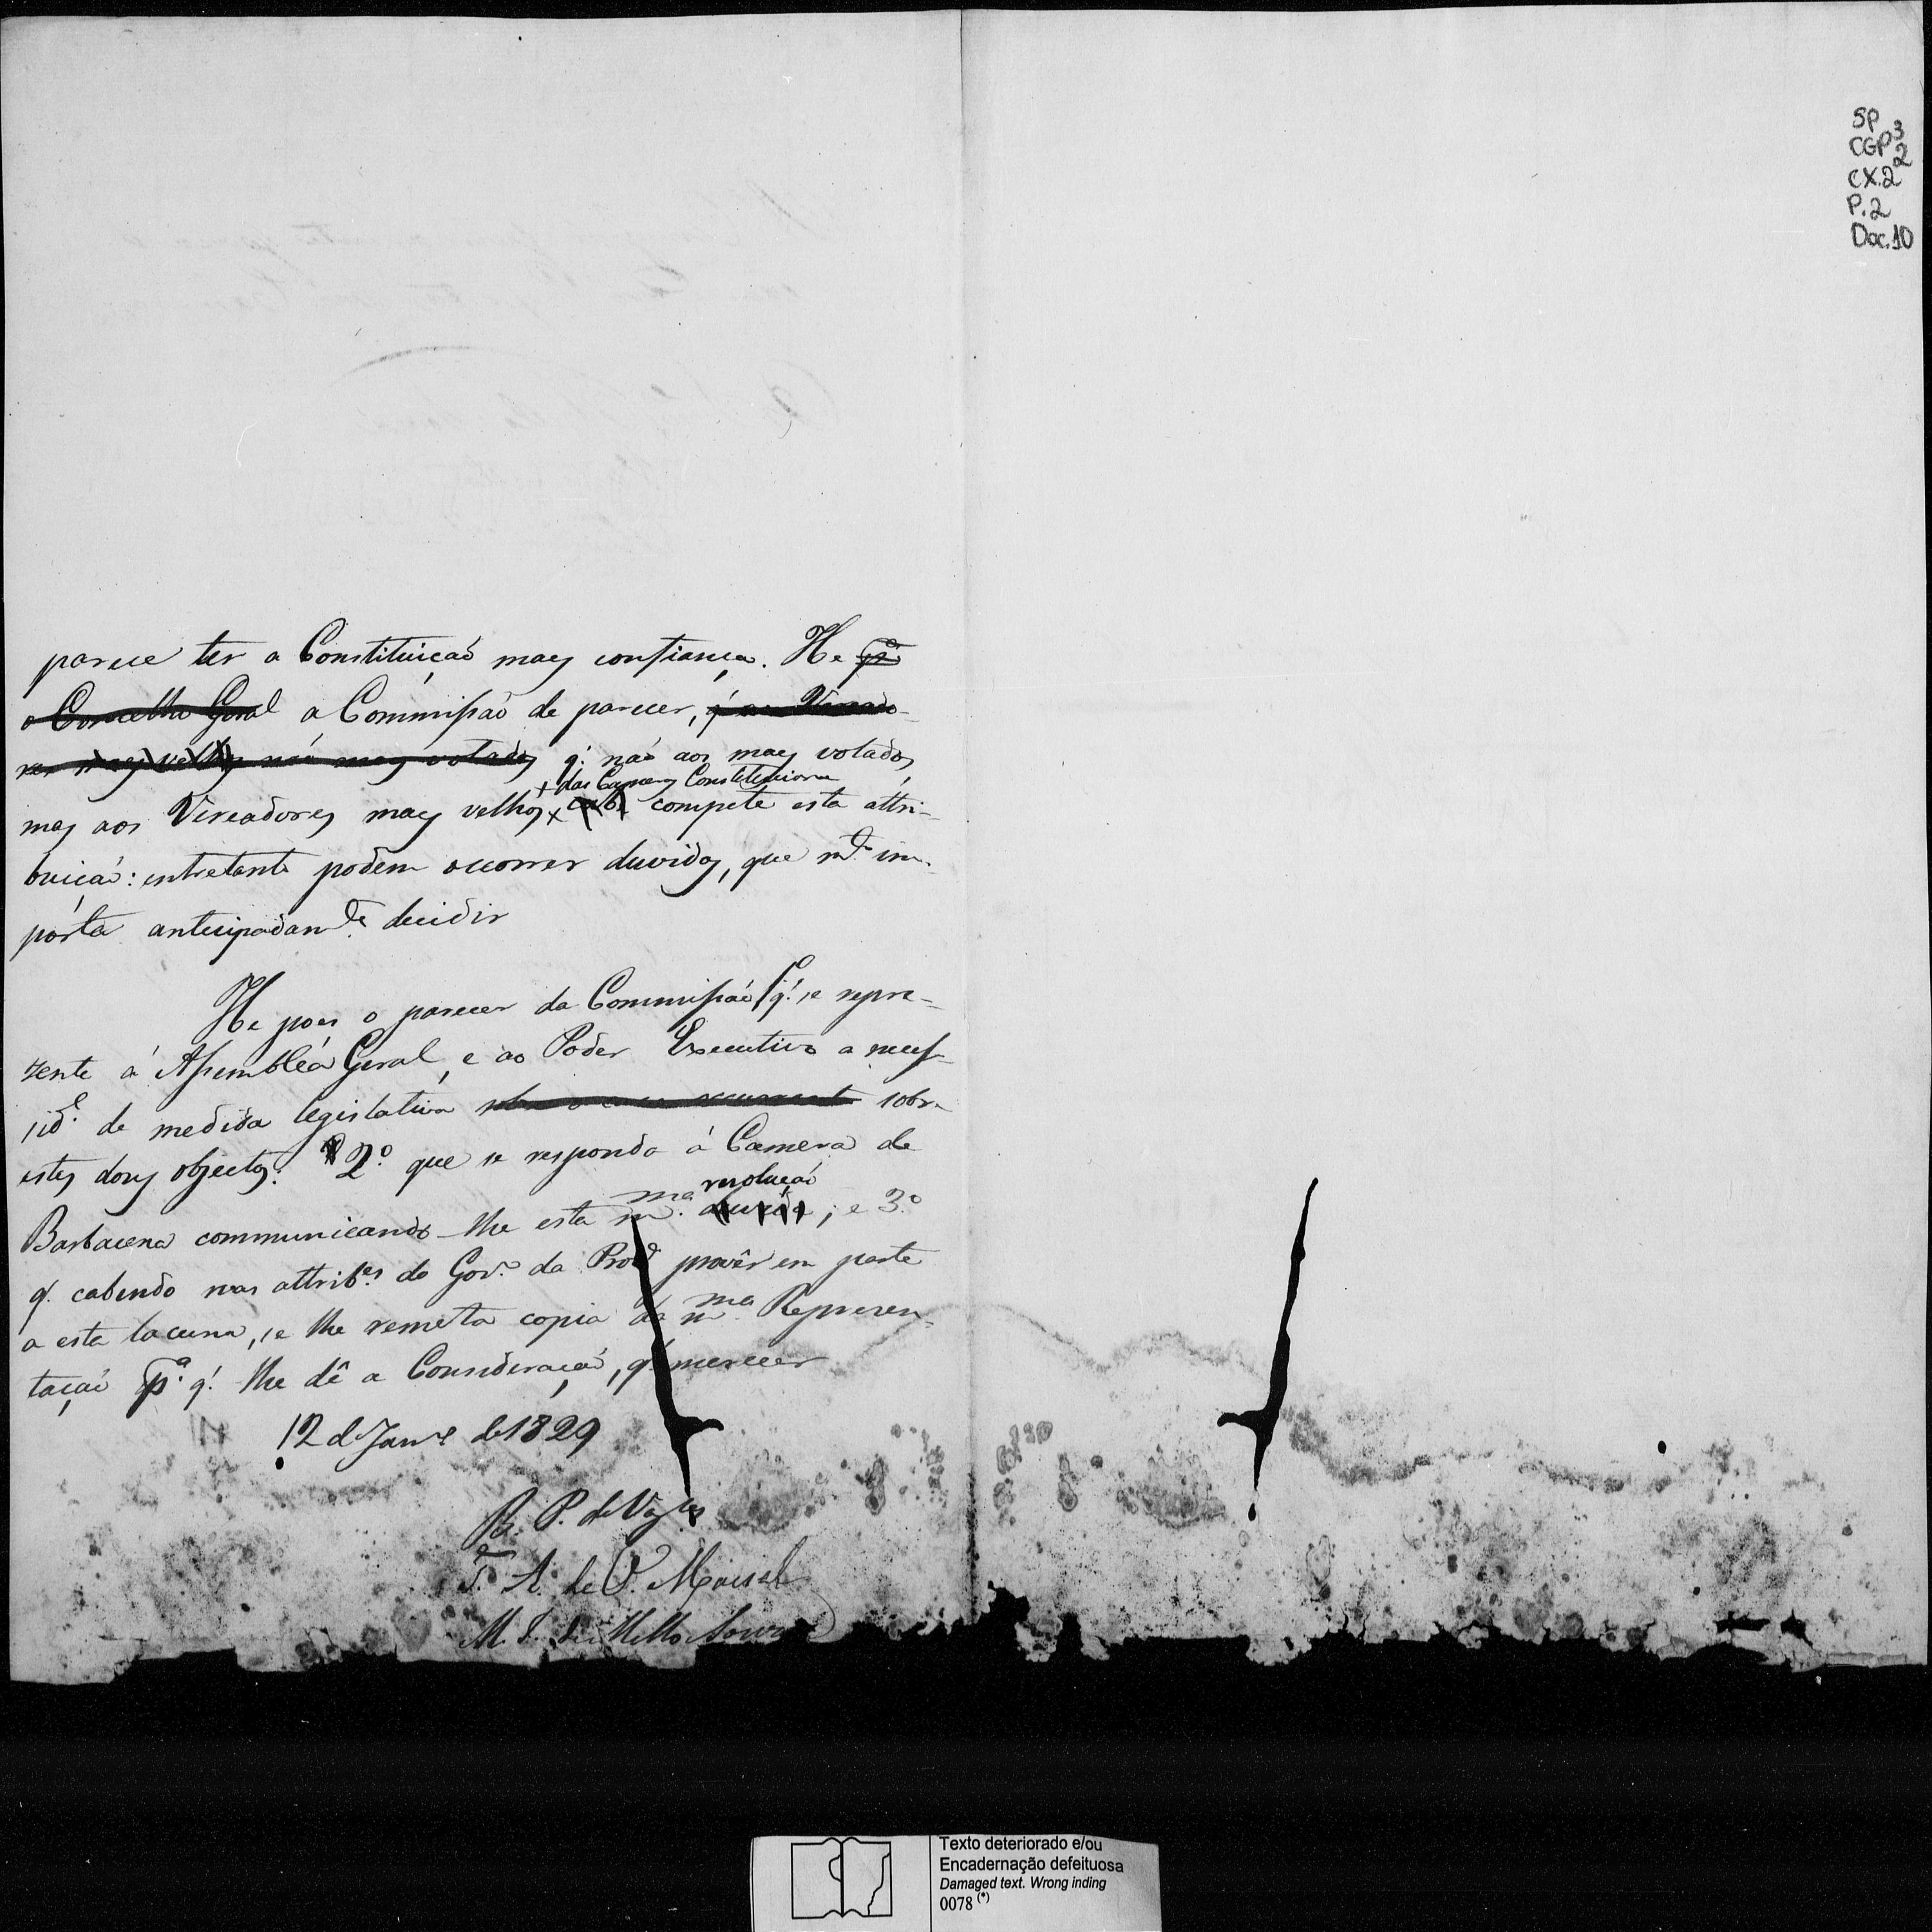 SP
CGP3
2
CX.2
P.2
Doc.10
parece ter a Constituição mays confiança. He pª
o Conselho Geral a Commissão de parecer, q' os Vereado-
res mays velhos não mays votados q' não aos mays votados,
+ das Camaras Constituciona
mas aos Vereadores mays velhos, × compete esta attri-
buição: entretanto podem ocorrer duvidas, que m.to im-
porta antecipadam.te decidir
He pois o parecer da Commissão 1º q' se repre-
zente á Assembléa Geral, e ao Poder Executivo a necess-
sid.e de medida legislativa sobre
estes dous objectos: 2.º que se responda á Camera de
resolução
Barbacena communicando-lhe esta m.ma duvida; e 3.º
q' cabendo nas attrib.es do Gov.º da Prov.ª provêr em parte
a esta lacuna, se lhe remeta copia da m.ma Represen-
tação p.ª q' lhe dê a Consideração, q' merecer
12 de Janr.º de 1829
B. P. de Vas.los
F. A. de O. Maciel
M. I. de Mello e Souza
Texto deteriorado e/ou
Encadernação defeituosa
Damaged text. Wrong inding
0078 (*)